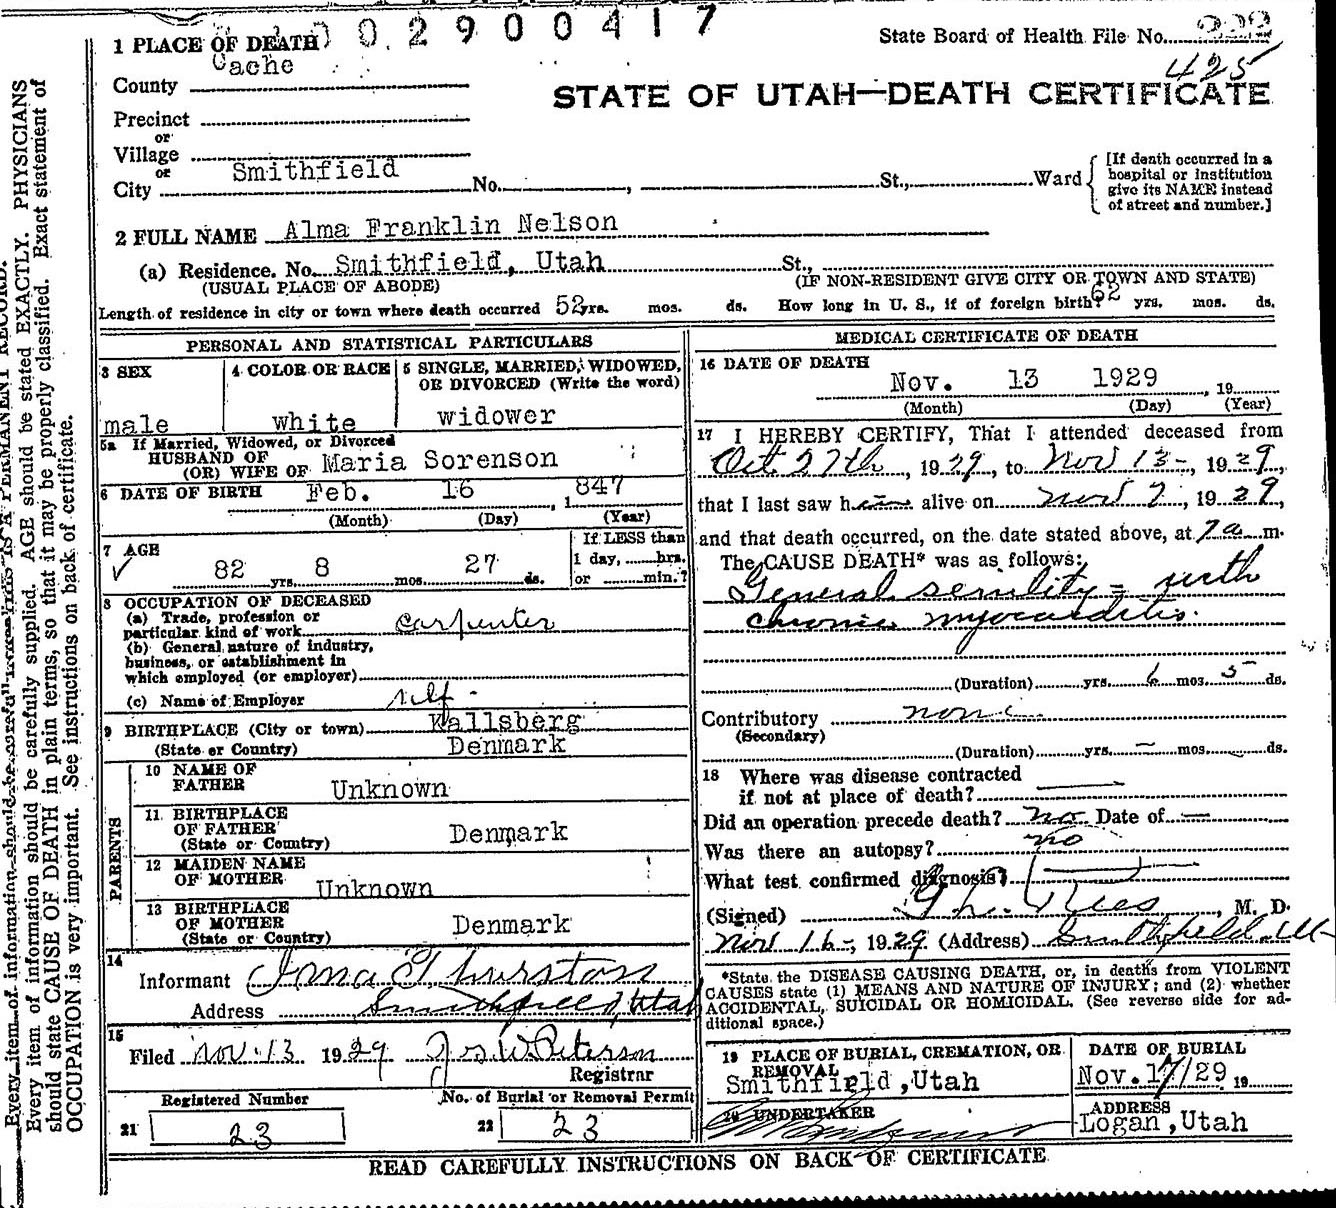 02900417
State Board of Health File No. 222
425
1 PLACE OF DEATH
Cache
County
STATE OF UTAH—DEATH CERTIFICATE
Precinct
or
Village
or
City Smithfield No. , St., Ward
[If death occurred in a
hospital or institution
give its NAME instead
of street and number.]
2 FULL NAME Alma Franklin Nelson
(a) Residence. No. Smithfield, Utah St.,
(USUAL PLACE OF ABODE) (IF NON-RESIDENT GIVE CITY OR TOWN AND STATE)
Length of residence in city or town where death occurred 52 yrs. mos. ds. How long in U. S., if of foreign birth? 62 yrs. mos. ds.
PERSONAL AND STATISTICAL PARTICULARS
3 SEX
male
4 COLOR OR RACE
white
5 SINGLE, MARRIED, WIDOWED,
OR DIVORCED (Write the word)
widower
5a If Married, Widowed, or Divorced
HUSBAND OF
(OR) WIFE OF Maria Sorenson
6 DATE OF BIRTH Feb. 16, 1847
(Month) (Day) (Year)
7 AGE
82 yrs. 8 mos. 27 ds.
If LESS than
1 day, hrs.
or min.?
8 OCCUPATION OF DECEASED
(a) Trade, profession or
particular kind of work carpenter
(b) General nature of industry,
business, or establishment in
which employed (or employer)
(c) Name of Employer self -
9 BIRTHPLACE (City or town) Kallsberg
(State or Country) Denmark
PARENTS
10 NAME OF
FATHER Unknown
11 BIRTHPLACE
OF FATHER Denmark
(State or Country)
12 MAIDEN NAME
OF MOTHER Unknown
13 BIRTHPLACE
OF MOTHER Denmark
(State or Country)
14
Informant Iona E Thurston
Address Smithfield, Utah
15
Filed Nov. 13 1929 Jos. W. Peterson
Registrar
Registered Number
21 23
No. of Burial or Removal Permit
22 23
MEDICAL CERTIFICATE OF DEATH
16 DATE OF DEATH
Nov. 13 1929, 19
(Month) (Day) (Year)
17 I HEREBY CERTIFY, That I attended deceased from
Oct 27th, 1929, to Nov 13-, 1929,
that I last saw him alive on Nov 7, 1929,
and that death occurred, on the date stated above, at 7a m.
The CAUSE DEATH* was as follows:
General senility = with
chronic myocarditis.
(Duration) yrs. 6 mos. 5 ds.
Contributory none
(Secondary)
(Duration) yrs. — mos. — ds.
18 Where was disease contracted
if not at place of death? —
Did an operation precede death? no Date of —
Was there an autopsy? no
What test confirmed diagnosis?
(Signed) Rees, M. D.
Nov 16-, 1929 (Address) Smithfield, Ut-
*State the DISEASE CAUSING DEATH, or, in deaths from VIOLENT
CAUSES state (1) MEANS AND NATURE OF INJURY; and (2) whether
ACCIDENTAL, SUICIDAL OR HOMICIDAL. (See reverse side for ad-
ditional space.)
19 PLACE OF BURIAL, CREMATION, OR
REMOVAL
Smithfield, Utah
DATE OF BURIAL
Nov. 17/29 19
20 UNDERTAKER
ADDRESS
Logan, Utah
READ CAREFULLY INSTRUCTIONS ON BACK OF CERTIFICATE
Every item of information should be carefully supplied. AGE should be stated EXACTLY. PHYSICIANS
should state CAUSE OF DEATH in plain terms, so that it may be properly classified. Exact statement of
OCCUPATION is very important. See instructions on back of certificate.